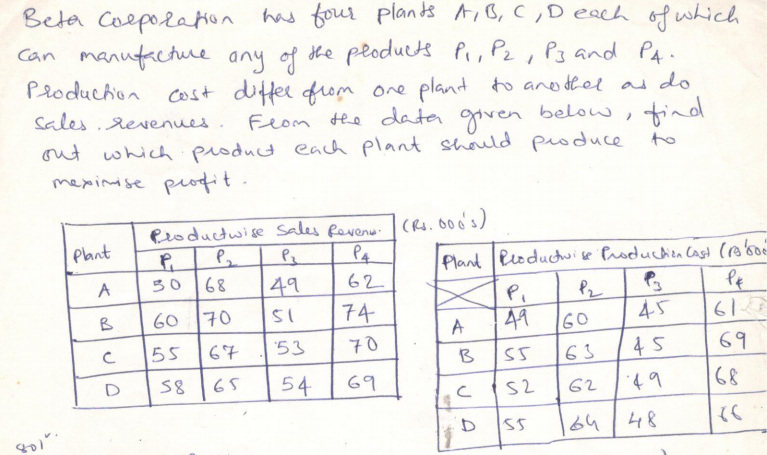 Beta Corporation has four plants A, B, C, D each of which
can manufacture any of the products P₁, P₂, P3 and P4.
Production cost differ from one plant to another as do
sales revenues. From the data given below, find
out which product each plant should produce to
maximise profit.
Plant Productwise Sales Revenu. (Rs. 000's)
P₁ P₂ P3 P4
A 50 68 49 62
B 60 70 51 74
C 55 67 53 70
D 58 65 54 69
Plant Productwise Production Cost (Rs'000
P₁ P₂ P3 P4
A 49 60 45 61
B 55 63 45 69
C 52 62 49 68
D 55 64 48 66